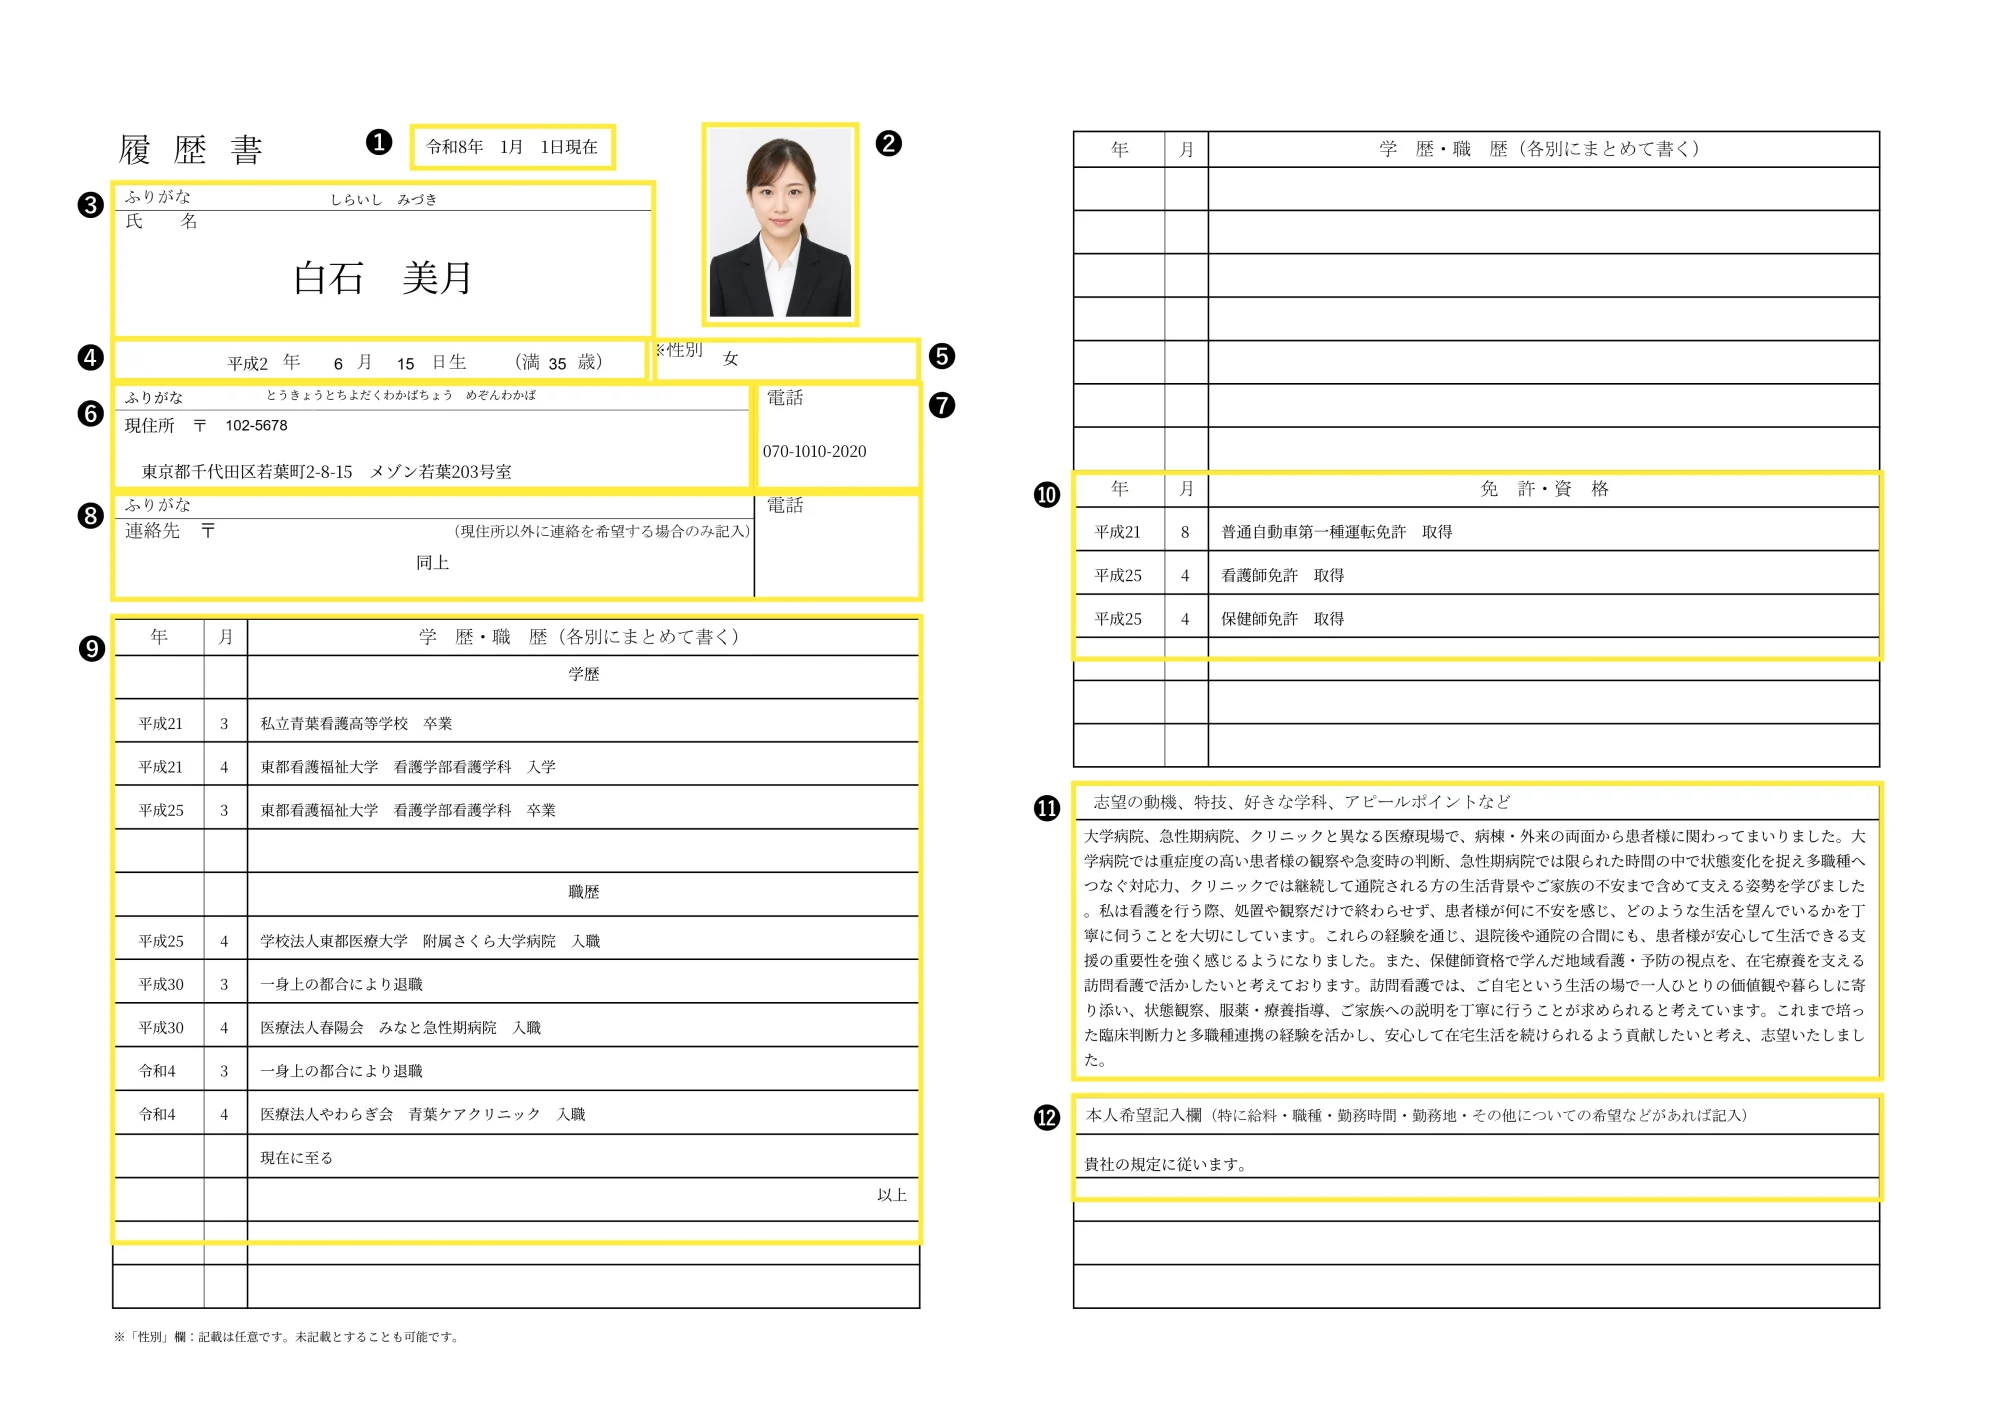 履 歴 書
❶
令和8年　1月　1日現在
❷
❸
ふりがな　しらいし　みづき
氏　　名
白石　美月
❹
平成2 年　6 月　15 日生　（満 35 歳）
※性別　女
❺
❻
ふりがな　とうきょうとちよだくわかばちょう　めぞんわかば
現住所　〒　102-5678
東京都千代田区若葉町2-8-15　メゾン若葉203号室
電話
❼
070-1010-2020
❽
ふりがな
連絡先　〒　（現住所以外に連絡を希望する場合のみ記入）
同上
電話
❾
年　月　学　歴・職　歴（各別にまとめて書く）
学歴
平成21　3　私立青葉看護高等学校　卒業
平成21　4　東都看護福祉大学　看護学部看護学科　入学
平成25　3　東都看護福祉大学　看護学部看護学科　卒業
職歴
平成25　4　学校法人東都医療大学　附属さくら大学病院　入職
平成30　3　一身上の都合により退職
平成30　4　医療法人春陽会　みなと急性期病院　入職
令和4　3　一身上の都合により退職
令和4　4　医療法人やわらぎ会　青葉ケアクリニック　入職
現在に至る
以上
※「性別」欄：記載は任意です。未記載とすることも可能です。
年　月　学　歴・職　歴（各別にまとめて書く）
❿
年　月　免　許・資　格
平成21　8　普通自動車第一種運転免許　取得
平成25　4　看護師免許　取得
平成25　4　保健師免許　取得
⓫
志望の動機、特技、好きな学科、アピールポイントなど
大学病院、急性期病院、クリニックと異なる医療現場で、病棟・外来の両面から患者様に関わってまいりました。大
学病院では重症度の高い患者様の観察や急変時の判断、急性期病院では限られた時間の中で状態変化を捉え多職種へ
つなぐ対応力、クリニックでは継続して通院される方の生活背景やご家族の不安まで含めて支える姿勢を学びました
。私は看護を行う際、処置や観察だけで終わらせず、患者様が何に不安を感じ、どのような生活を望んでいるかを丁
寧に伺うことを大切にしています。これらの経験を通じ、退院後や通院の合間にも、患者様が安心して生活できる支
援の重要性を強く感じるようになりました。また、保健師資格で学んだ地域看護・予防の視点を、在宅療養を支える
訪問看護で活かしたいと考えております。訪問看護では、ご自宅という生活の場で一人ひとりの価値観や暮らしに寄
り添い、状態観察、服薬・療養指導、ご家族への説明を丁寧に行うことが求められると考えています。これまで培っ
た臨床判断力と多職種連携の経験を活かし、安心して在宅生活を続けられるよう貢献したいと考え、志望いたしまし
た。
⓬
本人希望記入欄（特に給料・職種・勤務時間・勤務地・その他についての希望などがあれば記入）
貴社の規定に従います。